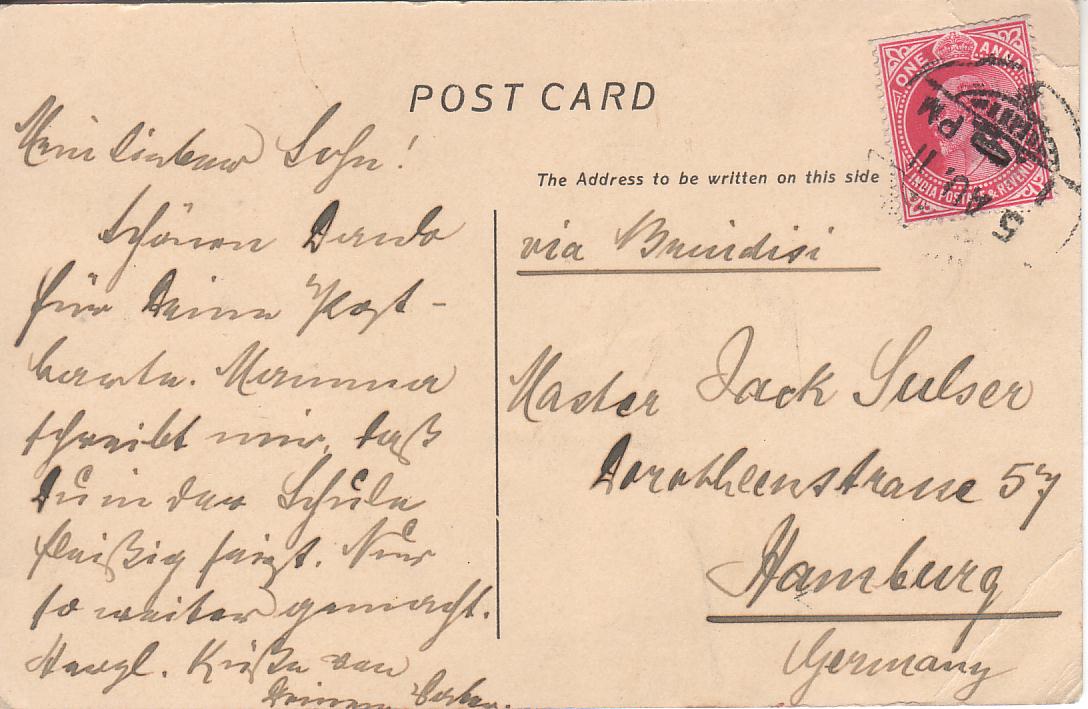 POST CARD
ONE ANNA
INDIA POSTAGE & REVENUE
11 PM
5 AU.
The Address to be written on this side
Mein lieber Sohn!
Schönen Dank
für Deine Post-
karte. Mamma
schreibt mir, daß
Du in der Schule
fleißig seist. Nur
so weiter gemacht.
Herzl. Küße von
Deinem Vater.
via Brindisi
Master Jack Sulser
Dorotheenstrasse 57
Hamburg
Germany